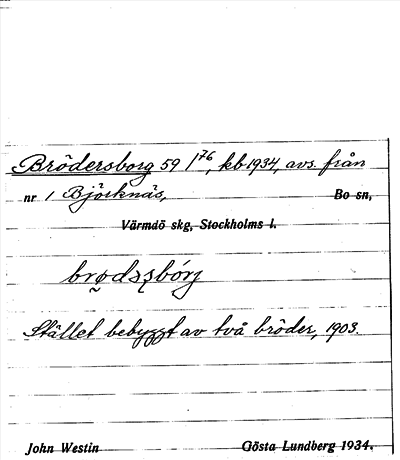 Brödersborg 59 1⁷⁶, kb 1934, avs. från
nr 1 Björknäs, Bo sn,
Värmdö skg, Stockholms l.
brø̮dəʂbórj
Stället bebyggt av två bröder, 1903.
John Westin Gösta Lundberg 1934.